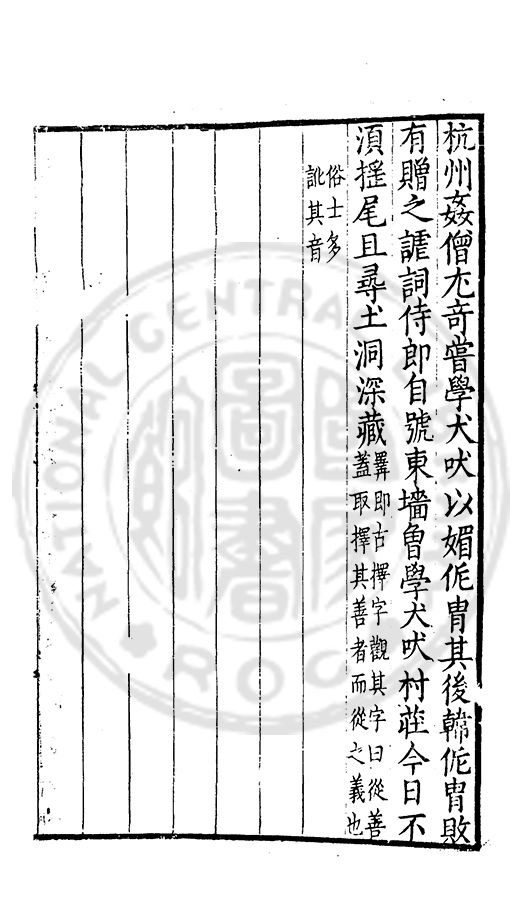 杭州姦僧尤竒嘗學犬吠以媚侂胄其後韓侂胄敗
有贈之謔詞侍郎自號東墻曾學犬吠村莊今日不
須揺尾且尋土洞深藏
即古擇字觀其字曰從善
蓋取擇其善者而從之義也
俗士多
訛其音
NATIONAL CENTRAL
ROC